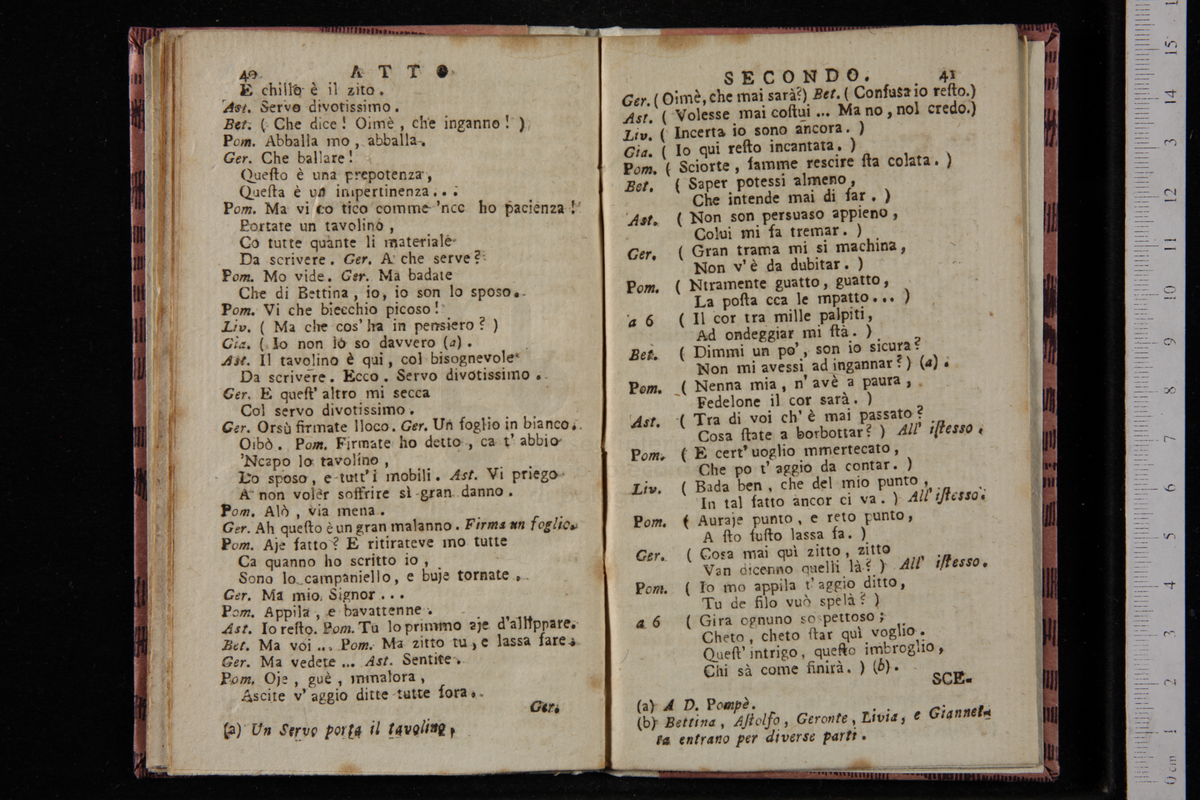 40 ATTO
E chillo è il zito.
Ast. Servo divotissimo.
Bet. ( Che dice! Oimè, che inganno! )
Pom. Abballa mo, abballa.
Ger. Che ballare!
Queſto è una prepotenza,
Queſta è un impertinenza...
Pom. Ma vi co tico comme 'ncc ho pacienza!
Portate un tavolinò,
Co tutte quante li materiale
Da scrivere. Ger. A che serve?
Pom. Mo vide. Ger. Ma badate
Che di Bettina, io, io son lo sposo.
Pom. Vi che biecchio picoso!
Liv. ( Ma che cos' ha in pensiero? )
Gia. ( Io non lo so davvero (a).
Ast. Il tavolino è qui, col bisognevole
Da scrivere. Ecco. Servo divotissimo.
Ger. E queſt' altro mi secca
Col servo divotissimo.
Ger. Orsù firmate lloco. Ger. Un foglio in bianco.
Oibò. Pom. Firmate ho detto, ca t' abbio
'Ncapo lo tavolino,
Lo sposo, e tutt' i mobili. Ast. Vi priego
A non volèr soffrire sì gran danno.
Pom. Alò, via mena.
Ger. Ah queſto è un gran malanno. Firma un foglio.
Pom. Aje fatto? E ritirateve mo tutte
Ca quanno ho scritto io,
Sono lo campaniello, e buje tornate.
Ger. Ma mio Signor...
Pom. Appila, e bavattenne.
Ast. Io reſto. Pom. Tu lo primmo aje d'allippare.
Bet. Ma voi... Pom. Ma zitto tu, e lassa fare.
Ger. Ma vedete... Ast. Sentite.
Pom. Oje, guè, mmalora,
Ascite v' aggio ditte tutte fora.
Ger.
(a) Un Servo porta il tavolino,
SECONDO. 41
Ger. ( Oimè, che mai sarà?) Bet. ( Confusa io reſto.)
Ast. ( Volesse mai coſtui... Ma no, nol credo.)
Liv. ( Incerta io sono ancora. )
Gia. ( Io qui reſto incantata. )
Pom. ( Sciorte, famme rescire ſta colata. )
Bet. ( Saper potessi almeno,
Che intende mai di far. )
Ast. ( Non son persuaso appieno,
Colui mi fa tremar. )
Ger. ( Gran trama mi si machina,
Non v' è da dubitar. )
Pom. ( Ntramente guatto, guatto,
La poſta cca le mpatto... )
a 6 ( Il cor tra mille palpiti,
Ad ondeggiar mi ſtà. )
Bet. ( Dimmi un po', son io sicura?
Non mi avessi ad ingannar? ) (a).
Pom. ( Nenna mia, n' avè a paura,
Fedelone il cor sarà. )
Ast. ( Tra di voi ch' è mai passato?
Cosa ſtate a borbottar? ) All' iſtesso.
Pom. ( E cert' uoglio mmertecato,
Che po t' aggio da contar. )
Liv. ( Bada ben, che del mio punto,
In tal fatto ancor ci va. ) All' iſtesso.
Pom. ( Auraje punto, e reto punto,
A ſto fuſto lassa fa. )
Ger. ( Cosa mai quì zitto, zitto
Van dicenno quelli là? ) All' iſtesso.
Pom. ( Io mo appila t' aggio ditto,
Tu de filo vuò spelà? )
a 6 ( Gira ognuno sospettoso;
Cheto, cheto ſtar quì voglio.
Queſt' intrigo, queſto imbroglio,
Chi sà come finirà. ) (b).
SCE-
(a) A D. Pompè.
(b) Bettina, Aſtolfo, Geronte, Livia, e Giannet-
ta entrano per diverse parti.